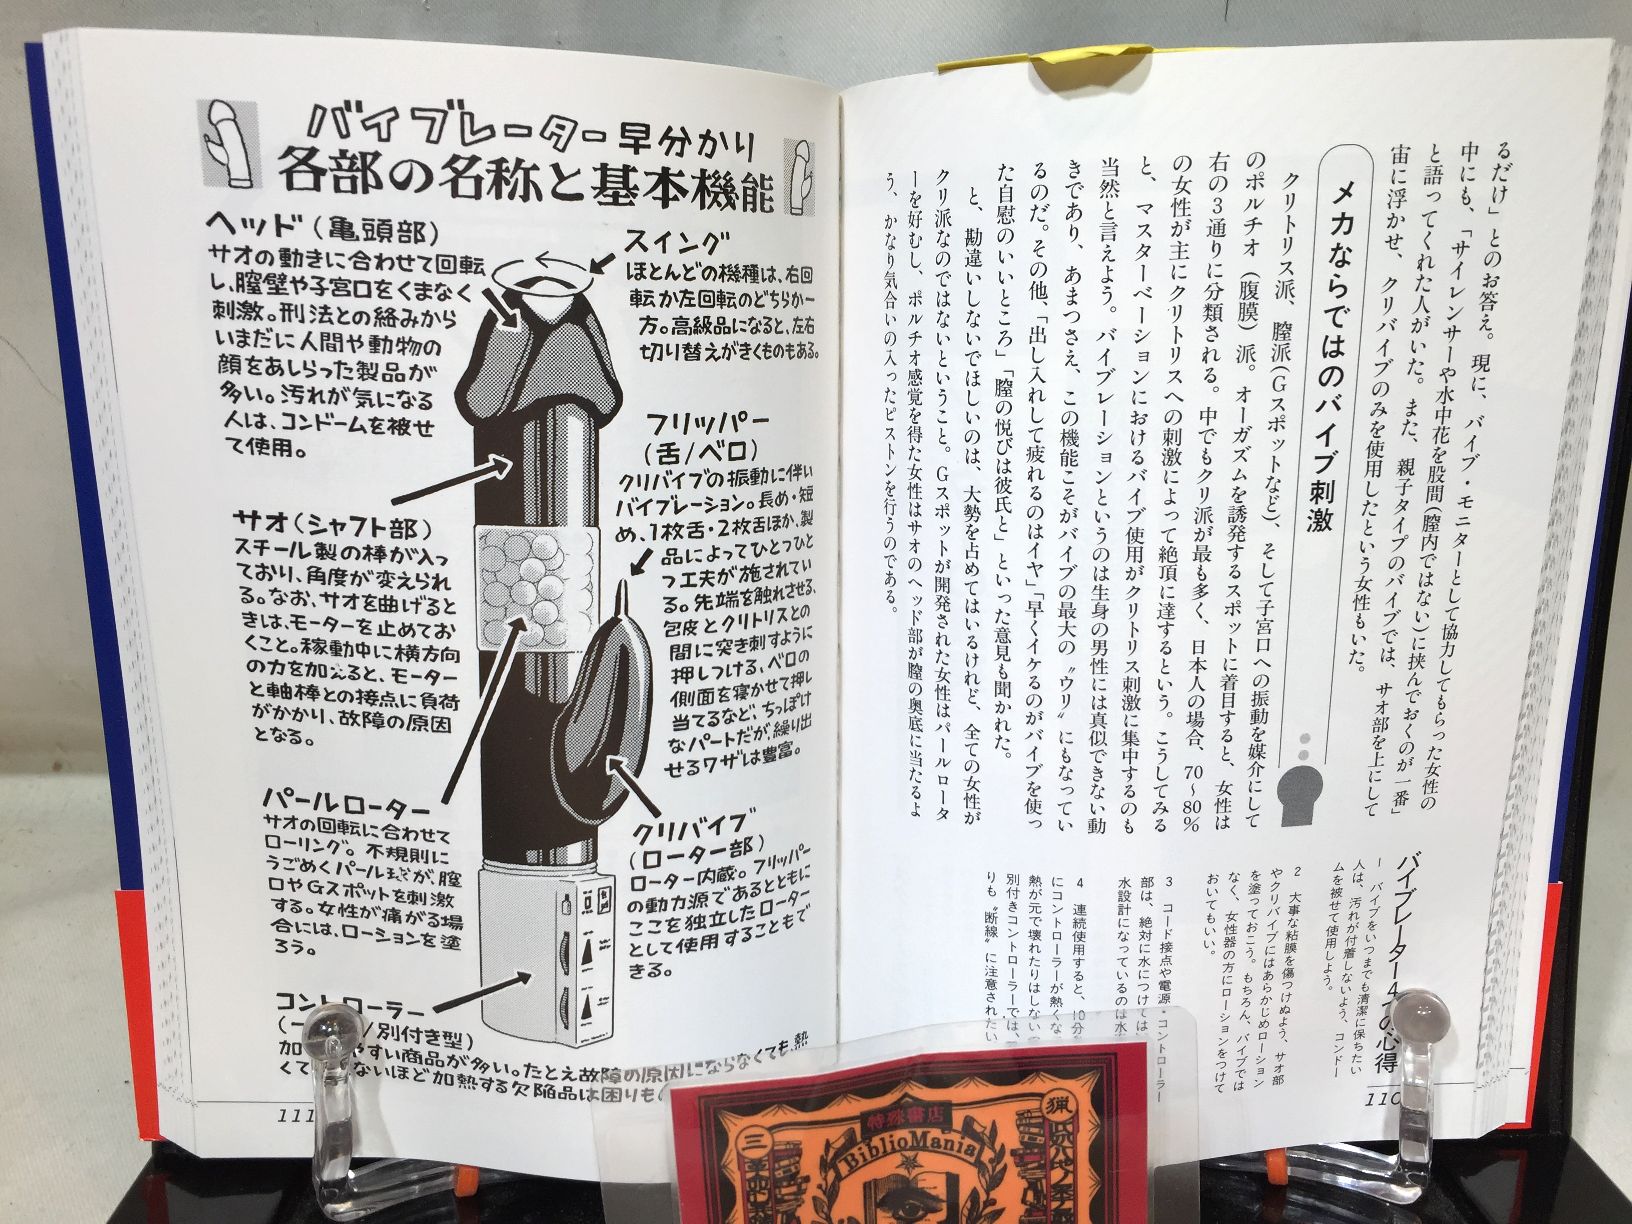 るだけ」とのお答え。現に、バイブ・モニターとして協力してもらった女性の
中にも、「サイレンサーや水中花を股間(膣内ではない)に挟んでおくのが一番」
と語ってくれた人がいた。また、親子タイプのバイブでは、サオ部を上にして
宙に浮かせ、クリバイブのみを使用したという女性もいた。
メカならではのバイブ刺激
クリトリス派、膣派(Gスポットなど)、そして子宮口への振動を媒介にして
のポルチオ(腹膜)派。オーガズムを誘発するスポットに着目すると、女性は
右の3通りに分類される。中でもクリ派が最も多く、日本人の場合、70～80%
の女性が主にクリトリスへの刺激によって絶頂に達するという。こうしてみる
と、マスターベーションにおけるバイブ使用がクリトリス刺激に集中するのも
当然と言えよう。バイブレーションというのは生身の男性には真似できない動
きであり、あまつさえ、この機能こそがバイブの最大の〝ウリ〟にもなってい
るのだ。その他、「出し入れして疲れるのはイヤ」「早くイケるのがバイブを使っ
た自慰のいいところ」「膣の悦びは彼氏と」といった意見も聞かれた。
と、勘違いしないでほしいのは、大勢を占めてはいるけれど、全ての女性が
クリ派なのではないということ。Gスポットが開発された女性はパールロータ
ーを好むし、ポルチオ感覚を得た女性はサオのヘッド部が膣の奥底に当たるよ
う、かなり気合いの入ったピストンを行うのである。
バイブレーター4つの心得
1 バイブをいつまでも清潔に保ちたい
人は、汚れが付着しないよう、コンドー
ムを被せて使用しよう。
2 大事な粘膜を傷つけぬよう、サオ部
やクリバイブにはあらかじめローション
を塗っておこう。もちろん、バイブでは
なく、女性器の方にローションをつけて
おいてもいい。
3 コード接点や電源・コントローラー
部は、絶対に水につけては
水設計になっているのは水
4 連続使用すると、10分
にコントローラーが熱くな
熱が元で壊れたりはしない
別付きコントローラーでは、
りも〝断線〟に注意されたい
110
バイブレーター早分かり
各部の名称と基本機能
ヘッド(亀頭部)
サオの動きに合わせて回転
し、膣壁や子宮口をくまなく
刺激。刑法との絡みから
いまだに人間や動物の
顔をあしらった製品が
多い。汚れが気になる
人は、コンドームを被せ
て使用。
スイング
ほとんどの機種は、右回
転か左回転のどちらか一
方。高級品になると、左右
切り替えがきくものもある。
フリッパー
(舌/ベロ)
クリバイブの振動に伴い
バイブレーション。長め・短
め、1枚舌・2枚舌ほか、製
品によってひとつひと
つ工夫が施されてい
る。先端を触れさせる、
包皮とクリトリスとの
間に突き刺すように
押しつける、ベロの
側面を寝かせて押し
当てるなど、ちっぽけ
なパートだが、繰り出
せるワザは豊富。
サオ(シャフト部)
スチール製の棒が入っ
ており、角度が変えられ
る。なお、サオを曲げると
きは、モーターを止めてお
くこと。稼動中に横方向
の力を加えると、モーター
と軸棒との接点に負荷
がかかり、故障の原因
となる。
パールローター
サオの回転に合わせて
ローリング。不規則に
うごめくパール球が、膣
口やGスポットを刺激
する。女性が痛がる場
合には、ローションを塗
ろう。
クリバイブ
(ローター部)
ローター内蔵。フリッパー
の動力源であるとともに
ここを独立したローター
として使用することもで
きる。
コントローラー
/別付き型)
やすい商品が多い。たとえ故障の原因にならなくても、熱
ないほど加熱する欠陥品は困りもの
111
特殊書店
BiblioMania
三
猟